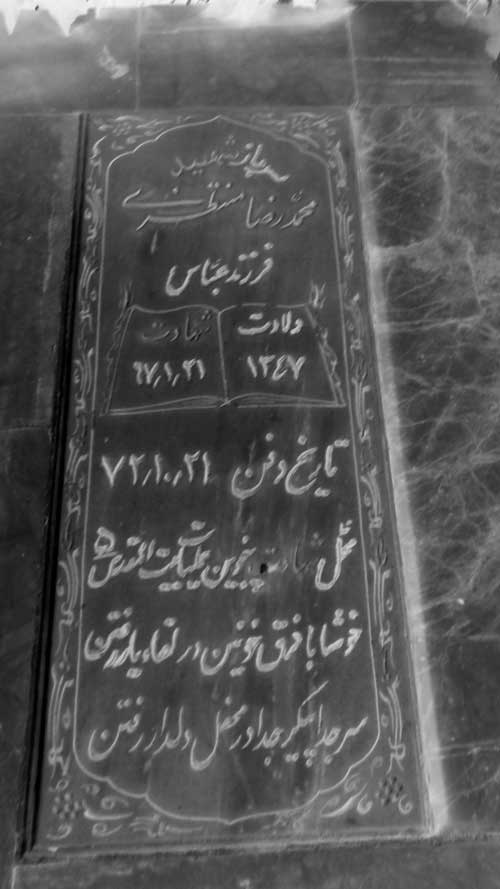 سرباز شهید
محمدرضا منتظری
فرزند عباس
ولادت شهادت
۱۳۴۷ ۶۷/۱/۳۱
تاریخ دفن ۷۲/۱۰/۲۱
محل شهادت خیبرین عملیات القدس
خوشا با فرق خونین در لقاء یار رفتن
سر جدا پیکر جدا در محفل دلدار رفتن